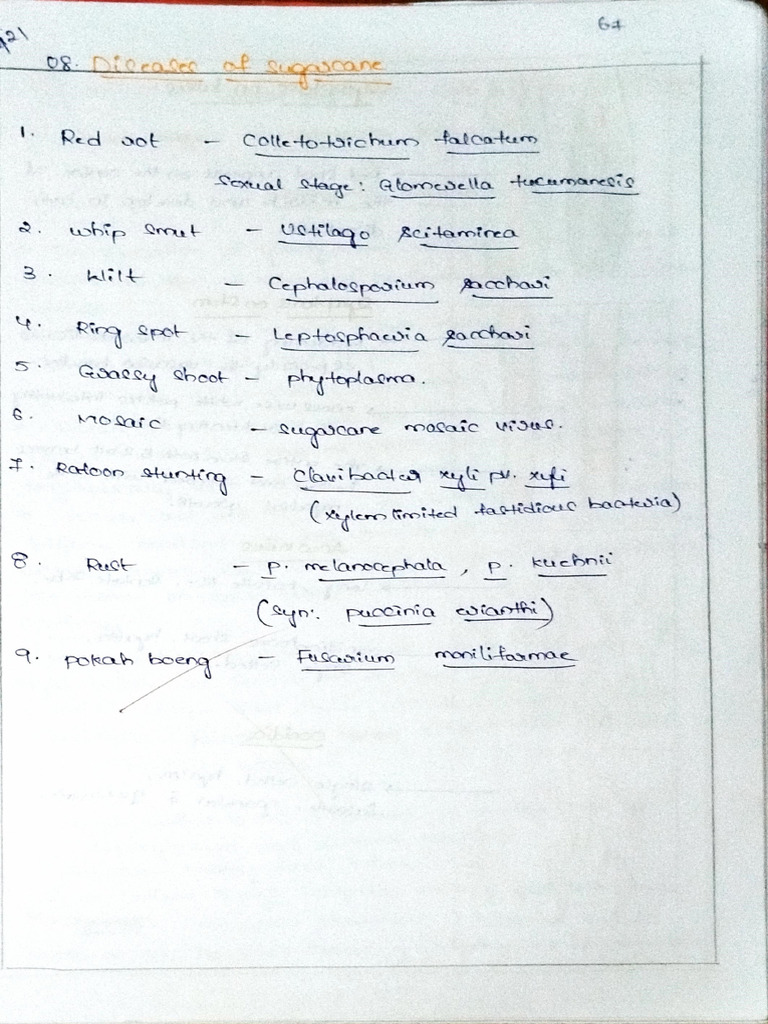 67
08. Diseases of sugarcane
1. Red rot - Colletotrichum falcatum
Sexual stage: Glomerella tucumanesis
2. Whip smut - Ustilago scitaminea
3. Wilt - Cephalosporium sacchari
4. Ring spot - Leptosphaeria sacchari
5. Grassy shoot - phytoplasma.
6. Mosaic - sugarcane mosaic virus.
7. Ratoon stunting - Clavibacter xyli pv. xyli
(xylem limited fastidious bacteria)
8. Rust - P. melanocephala, P. kuehnii
(Syn: puccinia erianthi)
9. pokah boeng - Fusarium moniliformae